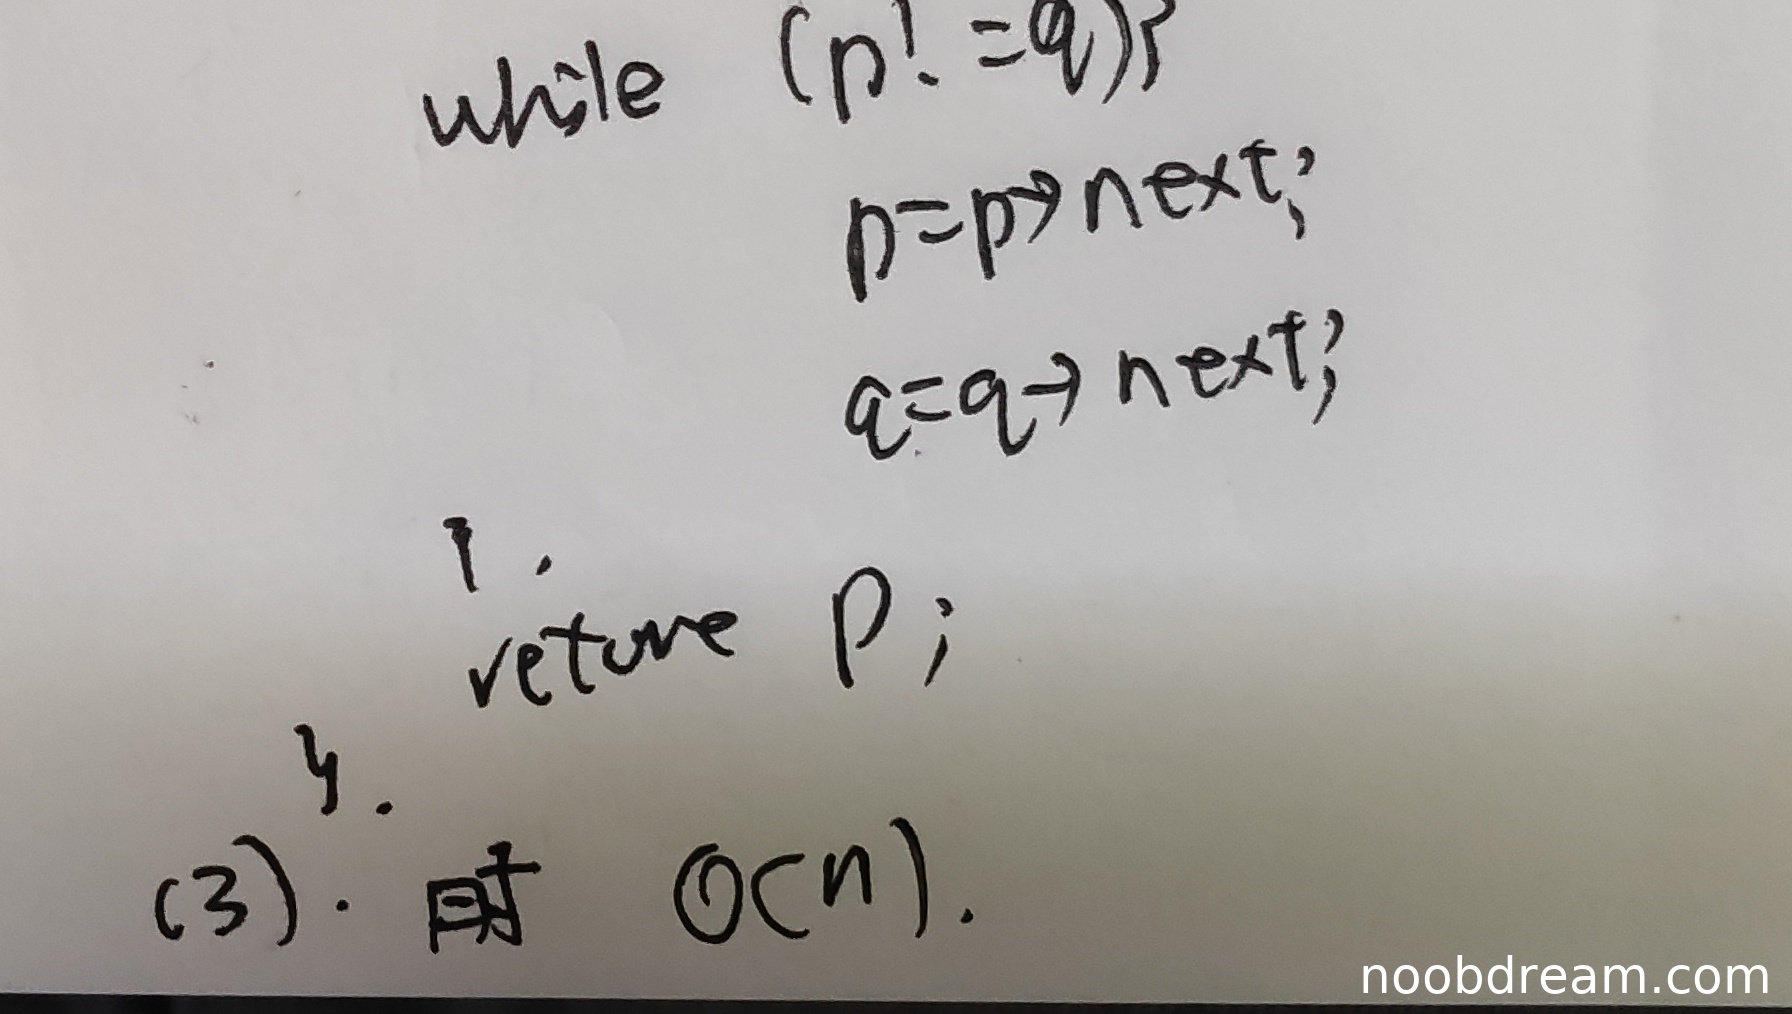 while (p! =q){
p=p→next;
q=q→next;
}.
reture p;
}.
(3). 时 O(n).
noobdream.com